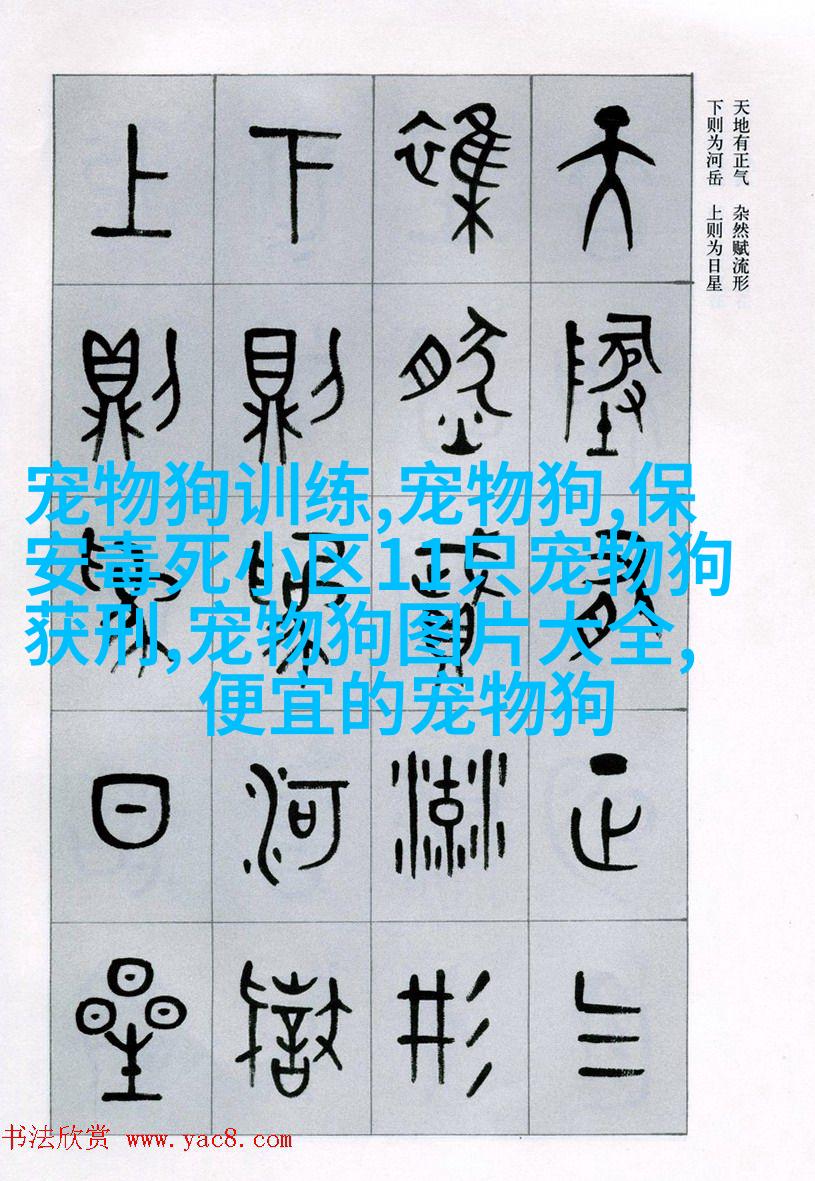 天地有正气 杂然赋流形
下则为河岳 上则为日星
天地有正气
雜然賦流形
下則為河嶽
上則為日星
宠物狗训练,宠物狗,保
安毒死小区11只宠物狗
获刑,宠物狗图片大全,
便宜的宠物狗
书法欣赏 www.yac8.com